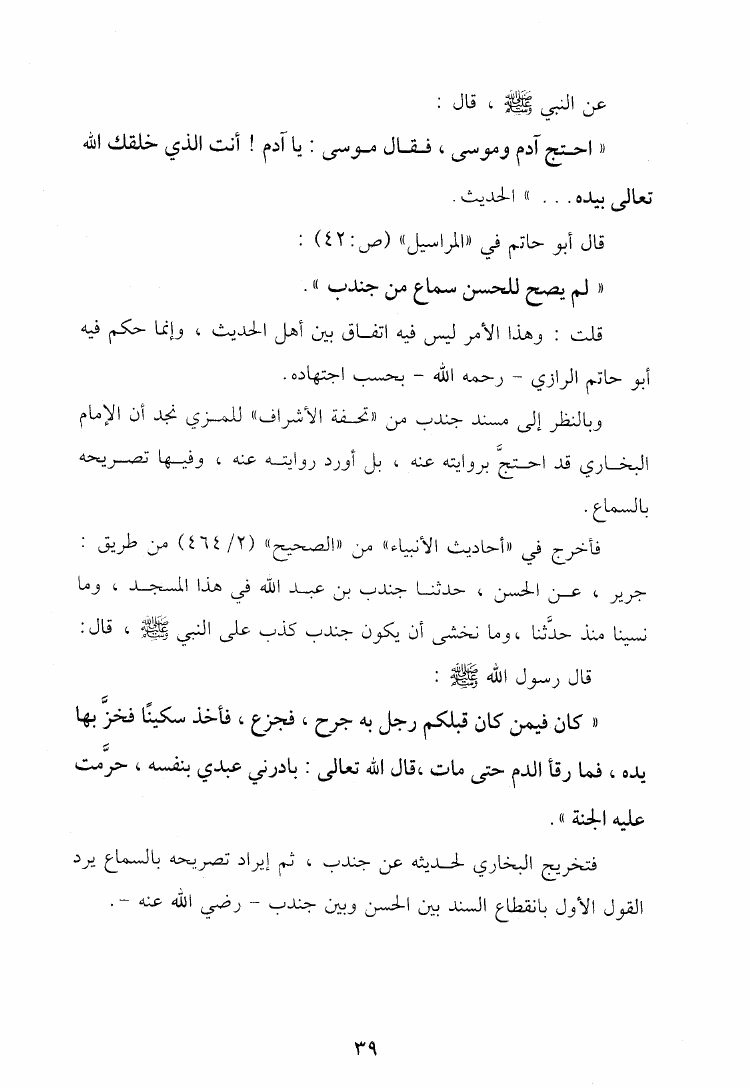 عن النبي ﷺ ، قال :
« احتج آدم وموسى ، فقال موسى : يا آدم ! أنت الذي خلقك الله
تعالى بيده . . . » الحديث .
قال أبو حاتم في «المراسيل» (ص:٤٢) :
« لم يصح للحسن سماع من جندب » .
قلت : وهذا الأمر ليس فيه اتفاق بين أهل الحديث ، وإنما حكم فيه
أبو حاتم الرازي – رحمه الله – بحسب اجتهاده .
وبالنظر إلى مسند جندب من «تحفة الأشراف» للمزي نجد أن الإمام
البخاري قد احتجَّ بروايته عنه ، بل أورد روايته عنه ، وفيها تصريحه
بالسماع .
فأخرج في «أحاديث الأنبياء» من «الصحيح» (٢/ ٤٦٤) من طريق :
جرير ، عن الحسن ، حدثنا جندب بن عبد الله في هذا المسجد ، وما
نسينا منذ حدَّثنا ، وما نخشى أن يكون جندب كذب على النبي ﷺ ، قال :
قال رسول الله ﷺ :
« كان فيمن كان قبلكم رجل به جرح ، فجزع ، فأخذ سكينًا فخزَّ بها
يده ، فما رقأ الدم حتى مات ، قال الله تعالى : بادرني عبدي بنفسه ، حرَّمت
عليه الجنة » .
فتخريج البخاري لحديثه عن جندب ، ثم إيراد تصريحه بالسماع يرد
القول الأول بانقطاع السند بين الحسن وبين جندب – رضي الله عنه – .
٣٩